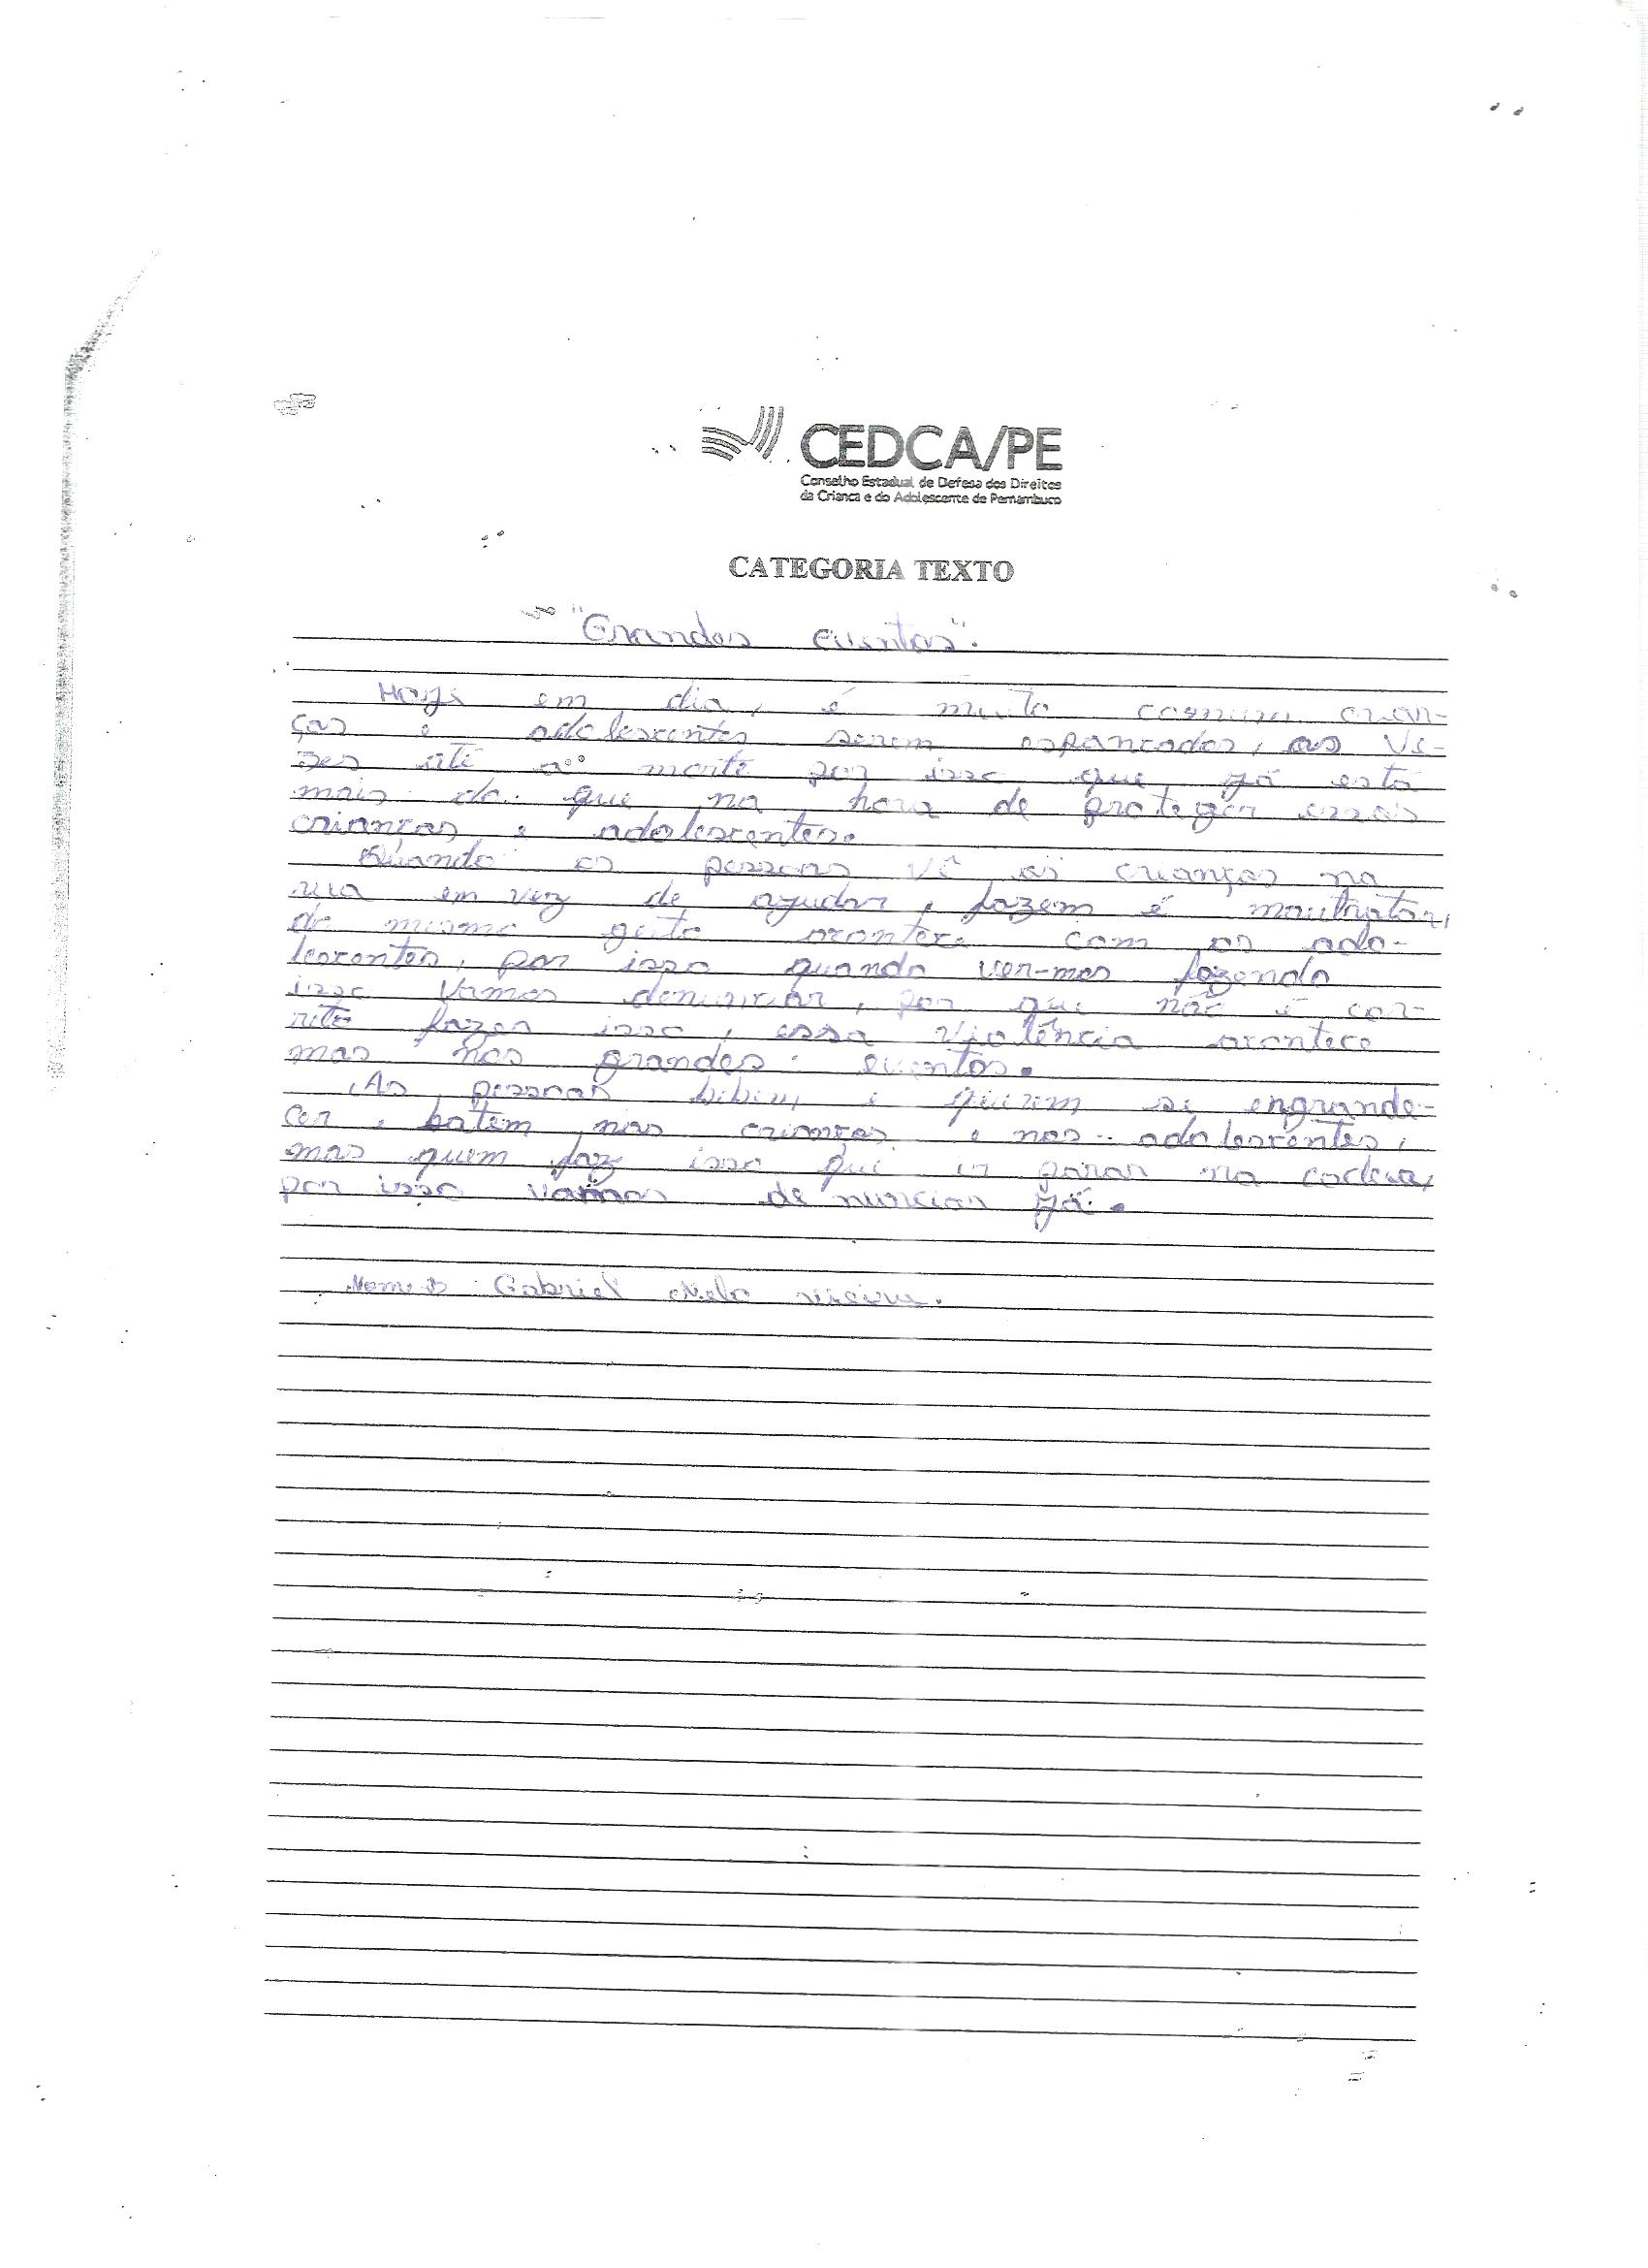 CEDCA/PE
Conselho Estadual de Defesa dos Direitos
da Criança e do Adolescente de Pernambuco
CATEGORIA TEXTO
"Grandes eventos".
Hoje em dia, é muito comum crian-
ças e adolescentes serem espancados, as ve-
zes até a morte por isso que já está
mais do que na hora de proteger essas
crianças e adolescentes.
Quando as pessoas vê as crianças na
rua em vez de ajudar, fazem é mautratar,
do mesmo geito acontece com os ado-
lescentes, por isso quando ver-mos fazendo
isso vamos denunciar, por que não é cor-
reto fazer isso, essa violência acontece
mas nos grandes eventos.
As pessoas bebem e querem se engrande-
cer, batem nas crianças e nos adolescentes,
mas quem faz isso que ir parar na cadeia,
por isso vamos de nunciar já.
Gabriel Melo